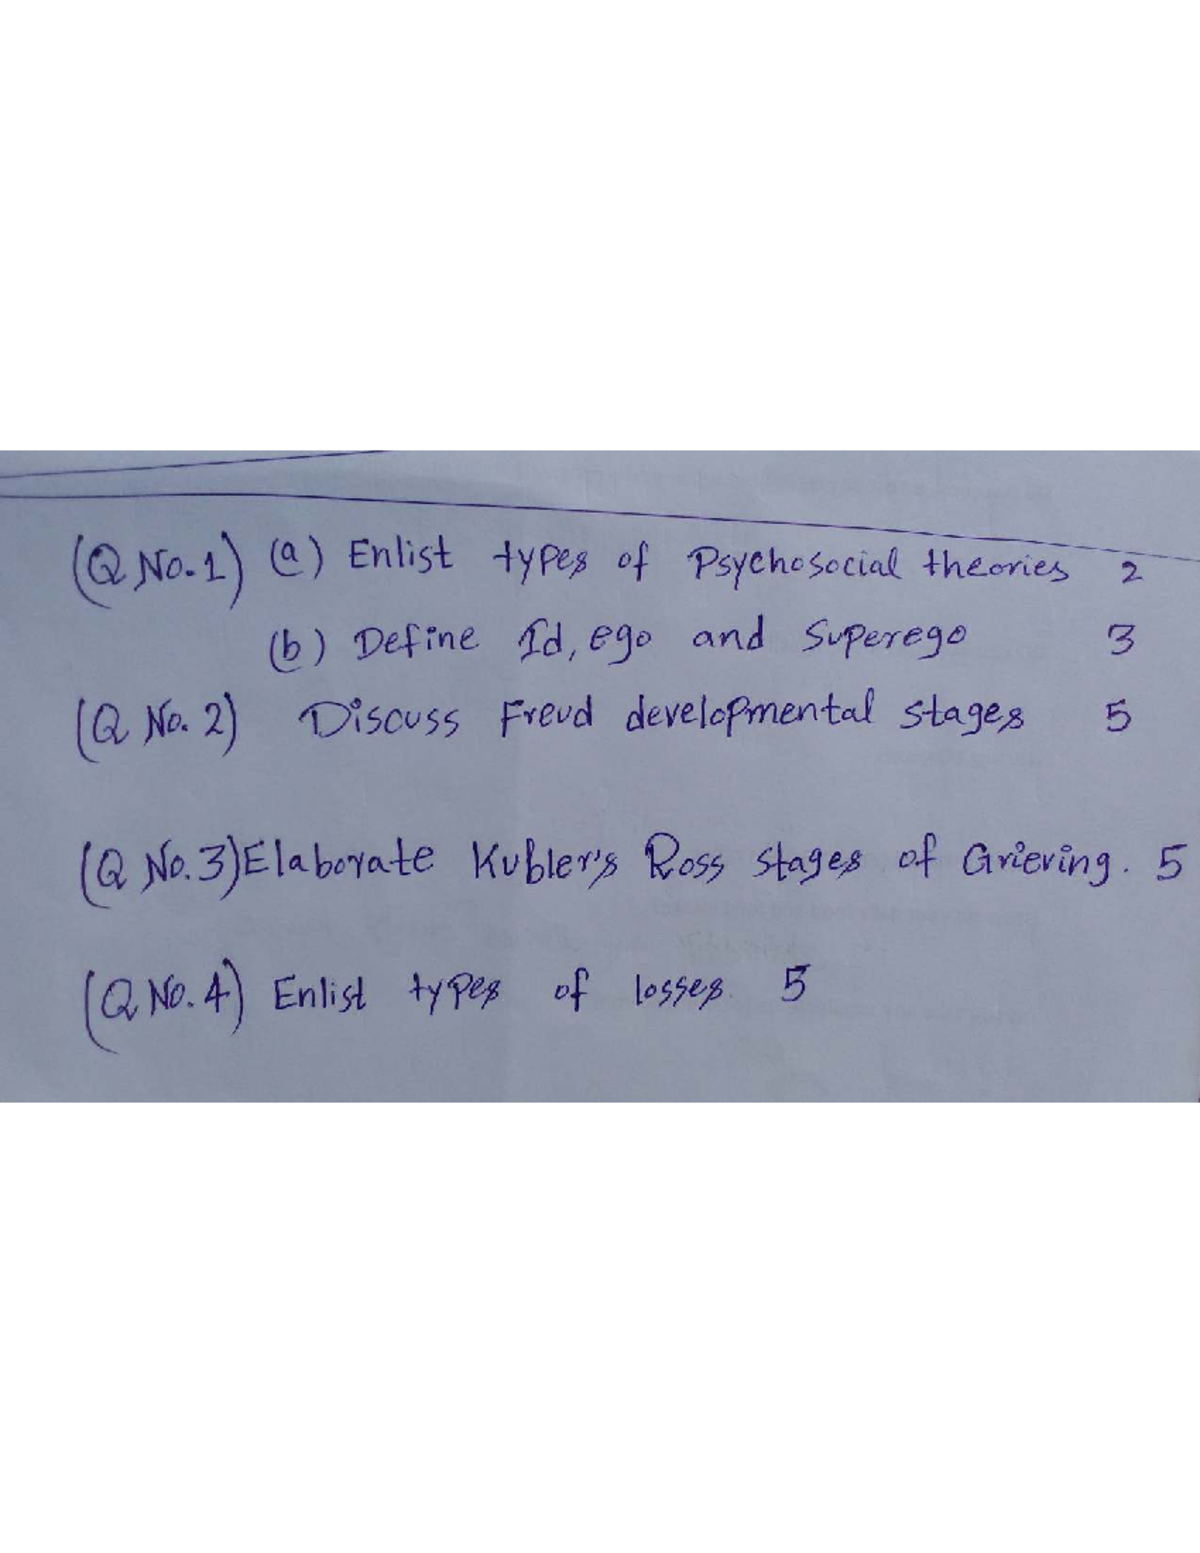 (Q No.1) (a) Enlist types of Psychosocial theories 2
(b) Define Id, ego and Superego 3
(Q No. 2) Discuss Freud developmental stages 5
(Q No.3) Elaborate Kubler's Ross stages of Grieving. 5
(Q No.4) Enlist types of losses. 5